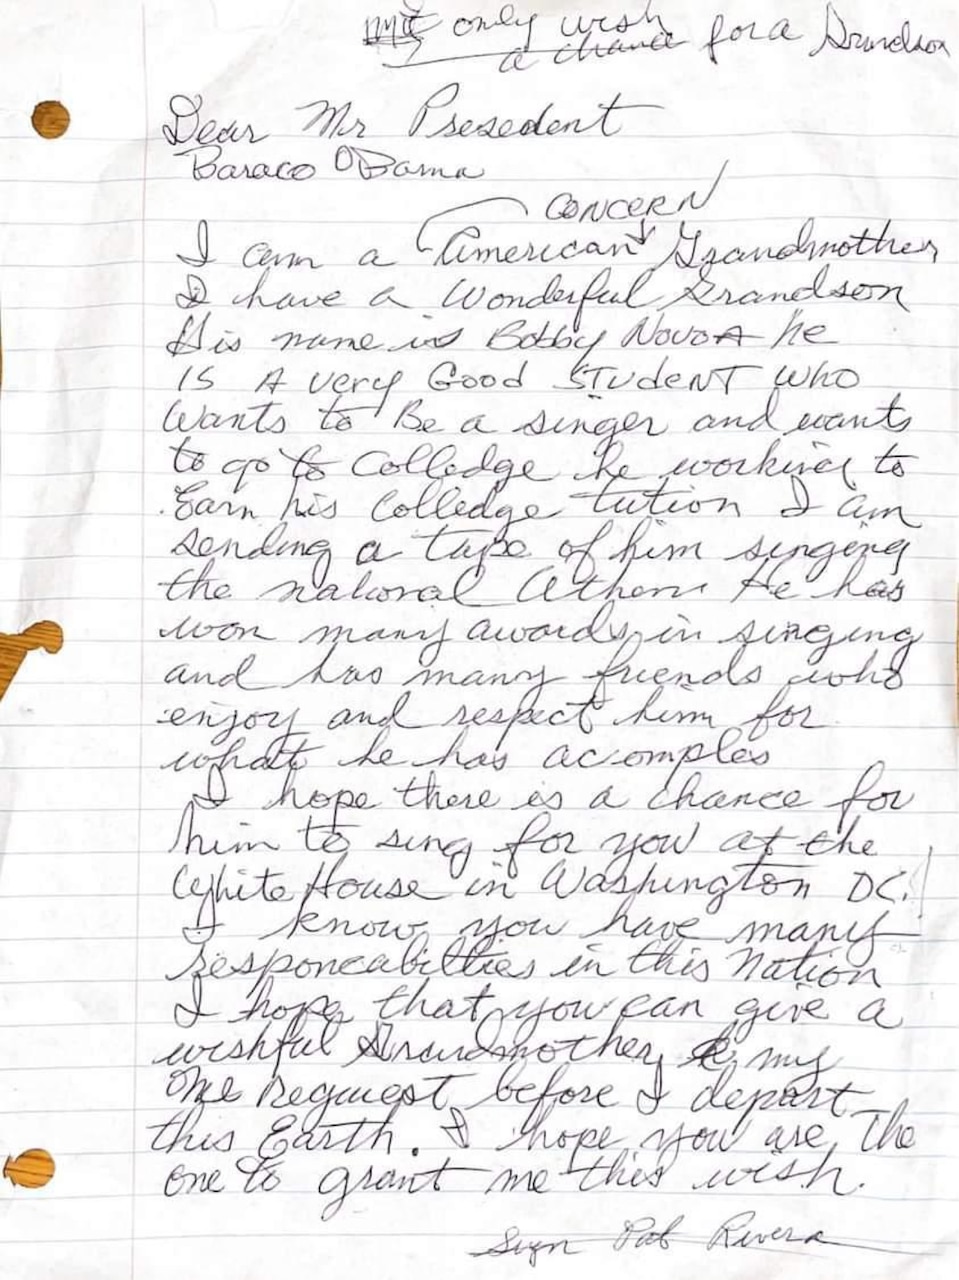 only wish
a chance for a Grandson
Dear Mr Presedent
Baraco OBama
CONCERN
I am a American Grandmother
I have a Wonderful Grandson
His name is Bobby NovoA he
IS A very Good STudeNT who
Wants to Be a singer and wants
to go to Colledge he working to
Earn his Colledge tution I am
sending a tape of him singing
the national Athem He has
won many awards in singing
and has many friends who
enjoy and respect him for
what he has acomples
I hope there is a chance for
him to sing for you at the
White House in Washington DC.
I know you have many
responcabilties in this Nation
I hope that you can give a
wishful Grandmother my
one request before I depart
this Earth. I hope you are The
one to grant me this wish.
Sign Pat Rivera